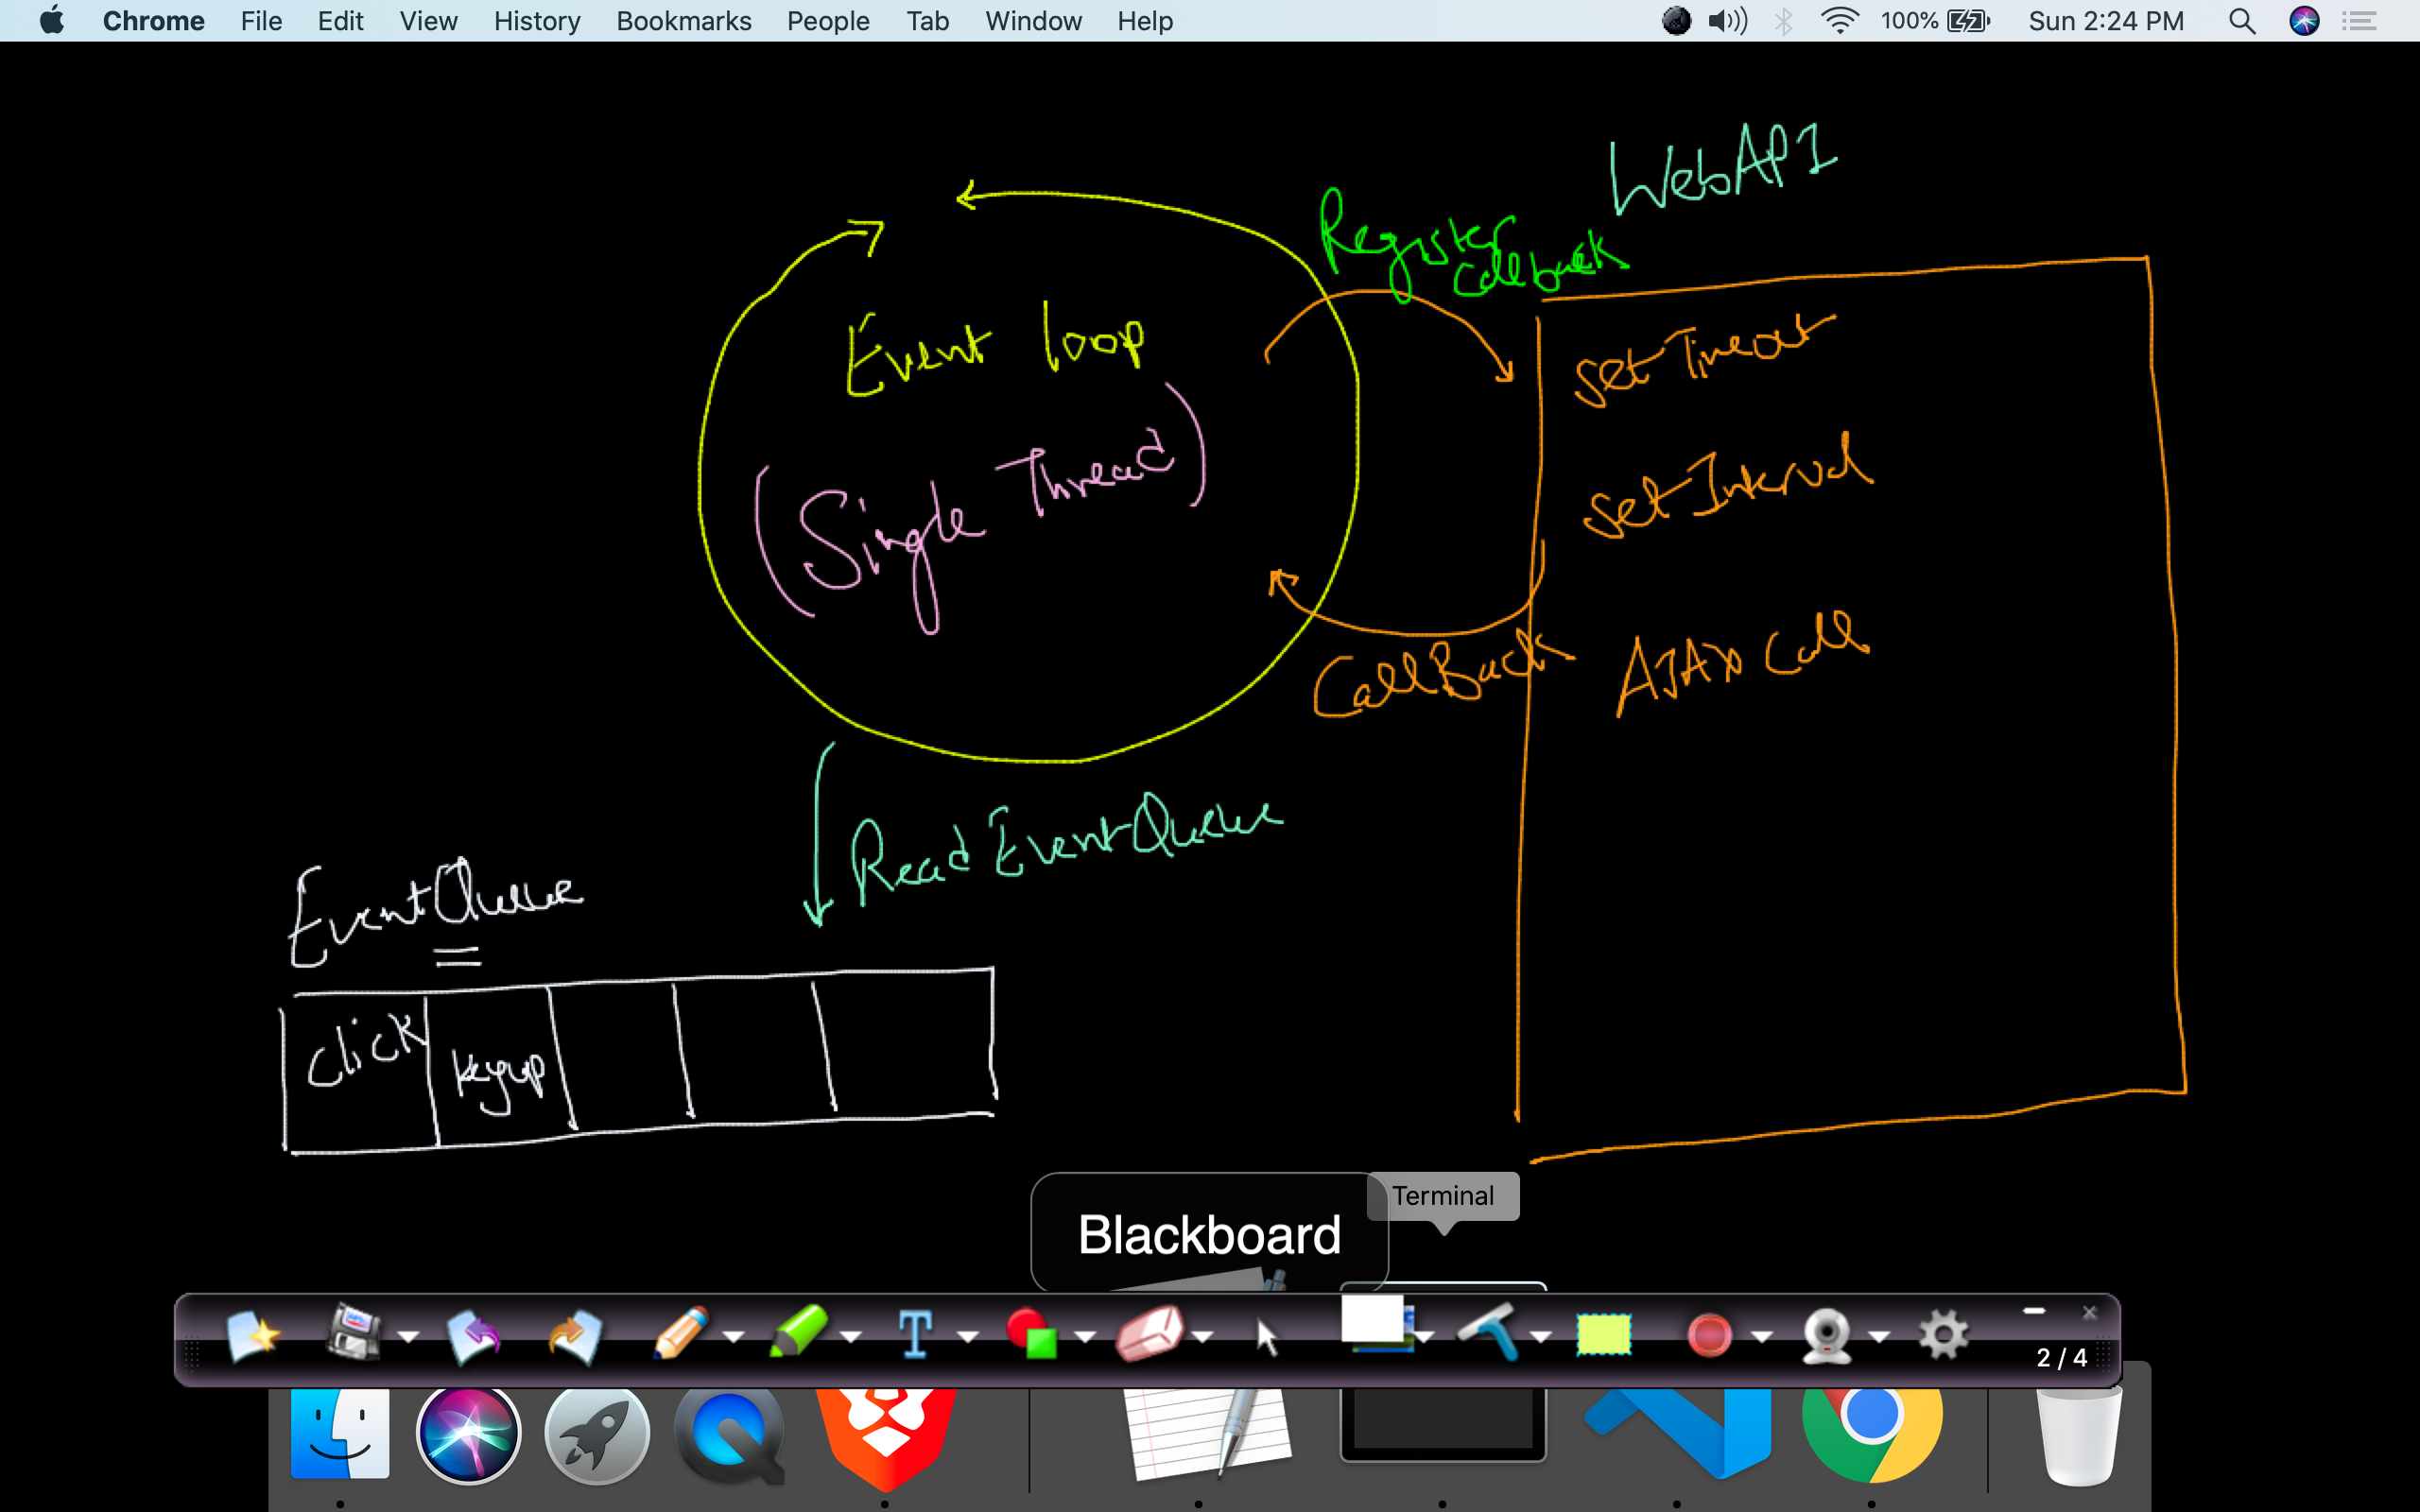 Chrome File Edit View History Bookmarks People Tab Window Help 100% Sun 2:24 PM
WebAPI
Register
Callback
Event loop
(Single Thread)
SetTimeout
SetInterval
CallBack
AJAX Call
Read EventQueue
EventQueue
click keyup
Terminal
Blackboard
T
2 / 4